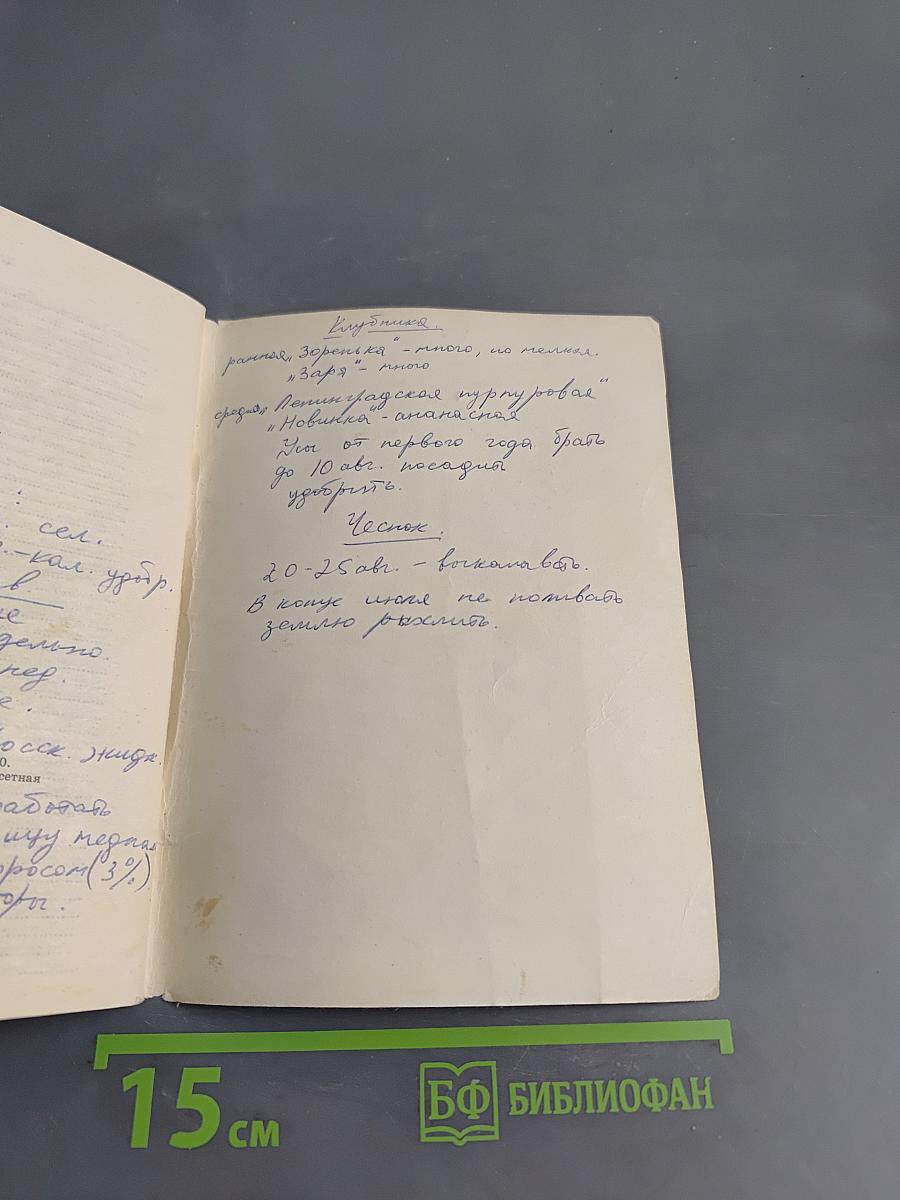 : 
сел.
-кал. удобр.
в.
дельно.
осск. жидк.
0.
сетная
работать
ицу медна
оросом (3%)
оры.
Клубника.
ранняя „Зоренька" - много, но мелкая.
„Заря" - много
средняя „Ленинградская пурпуровая"
„Новинка" - ананасная
Усы от первого года брать
до 10 авг. посадить
удобрить.
Чеснок.
20-25 авг. - выкапывать.
В конце июля не поливать
землю рыхлить.
15 см
БФ БИБЛИОФАН